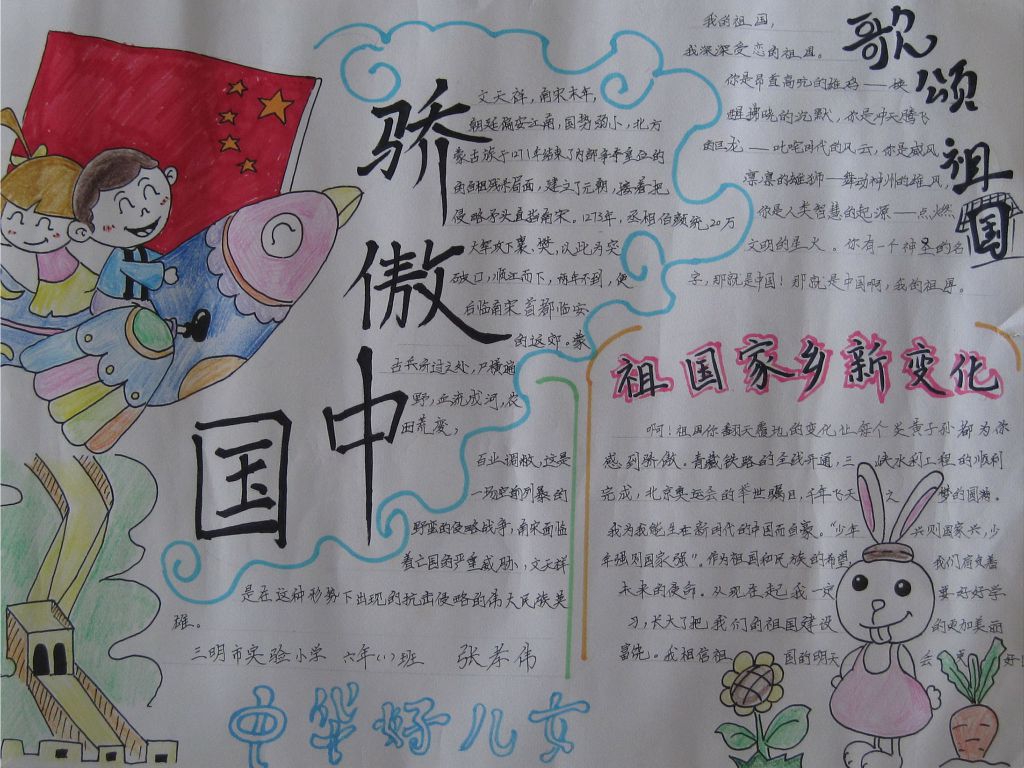 骄傲中国
文天祥，南宋末年，
朝廷偏安江南，国势弱小，北方
蒙古族于1271年结束了内部争夺皇位的
自相残杀局面，建立了元朝，接着把
侵略矛头直指南宋。1273年，丞相伯颜统20万
大军攻下襄、樊，以此为突
破口，顺江而下，两年不到，便
直临南宋首都临安
的近郊。蒙
古兵所过之处，尸横遍
野，血流成河，农
田荒废，
百业凋敝，这是
一场空前列暴的
野蛮的侵略战争，南宋面临
着亡国的严重威胁，文天祥
是在这种形势下出现的抗击侵略的伟大民族英
雄。
三明市实验小学 六年(1)班 张荣伟
中华好儿女
歌颂祖国
我的祖国，
我深深爱恋的祖国。
你是昂首高吭的雄鸡——唤
醒拂晓的沉默，你是冲天腾飞
的巨龙——叱咤时代的风云，你是威风
凛凛的雄狮——舞动神州的雄风，
你是人类智慧的起源——点燃
文明的星火。你有一个神圣的名
字，那就是中国！那就是中国啊，我的祖国。
祖国家乡新变化
啊！祖国你翻天覆地的变化让每个炎黄子孙都为你
感到骄傲。青藏铁路的全线开通，三峡水利工程的顺利
完成，北京奥运会的举世瞩目，千年飞天之梦的圆满。
我为我能生在新时代的中国而自豪。“少年兴则国家兴，少
年强则国家强”。作为祖国和民族的希望，我们肩负着
未来的使命。从现在起我一定要好好学
习，长大了把我们的祖国建设的更加美丽
富饶。我相信祖国的明天会更好！